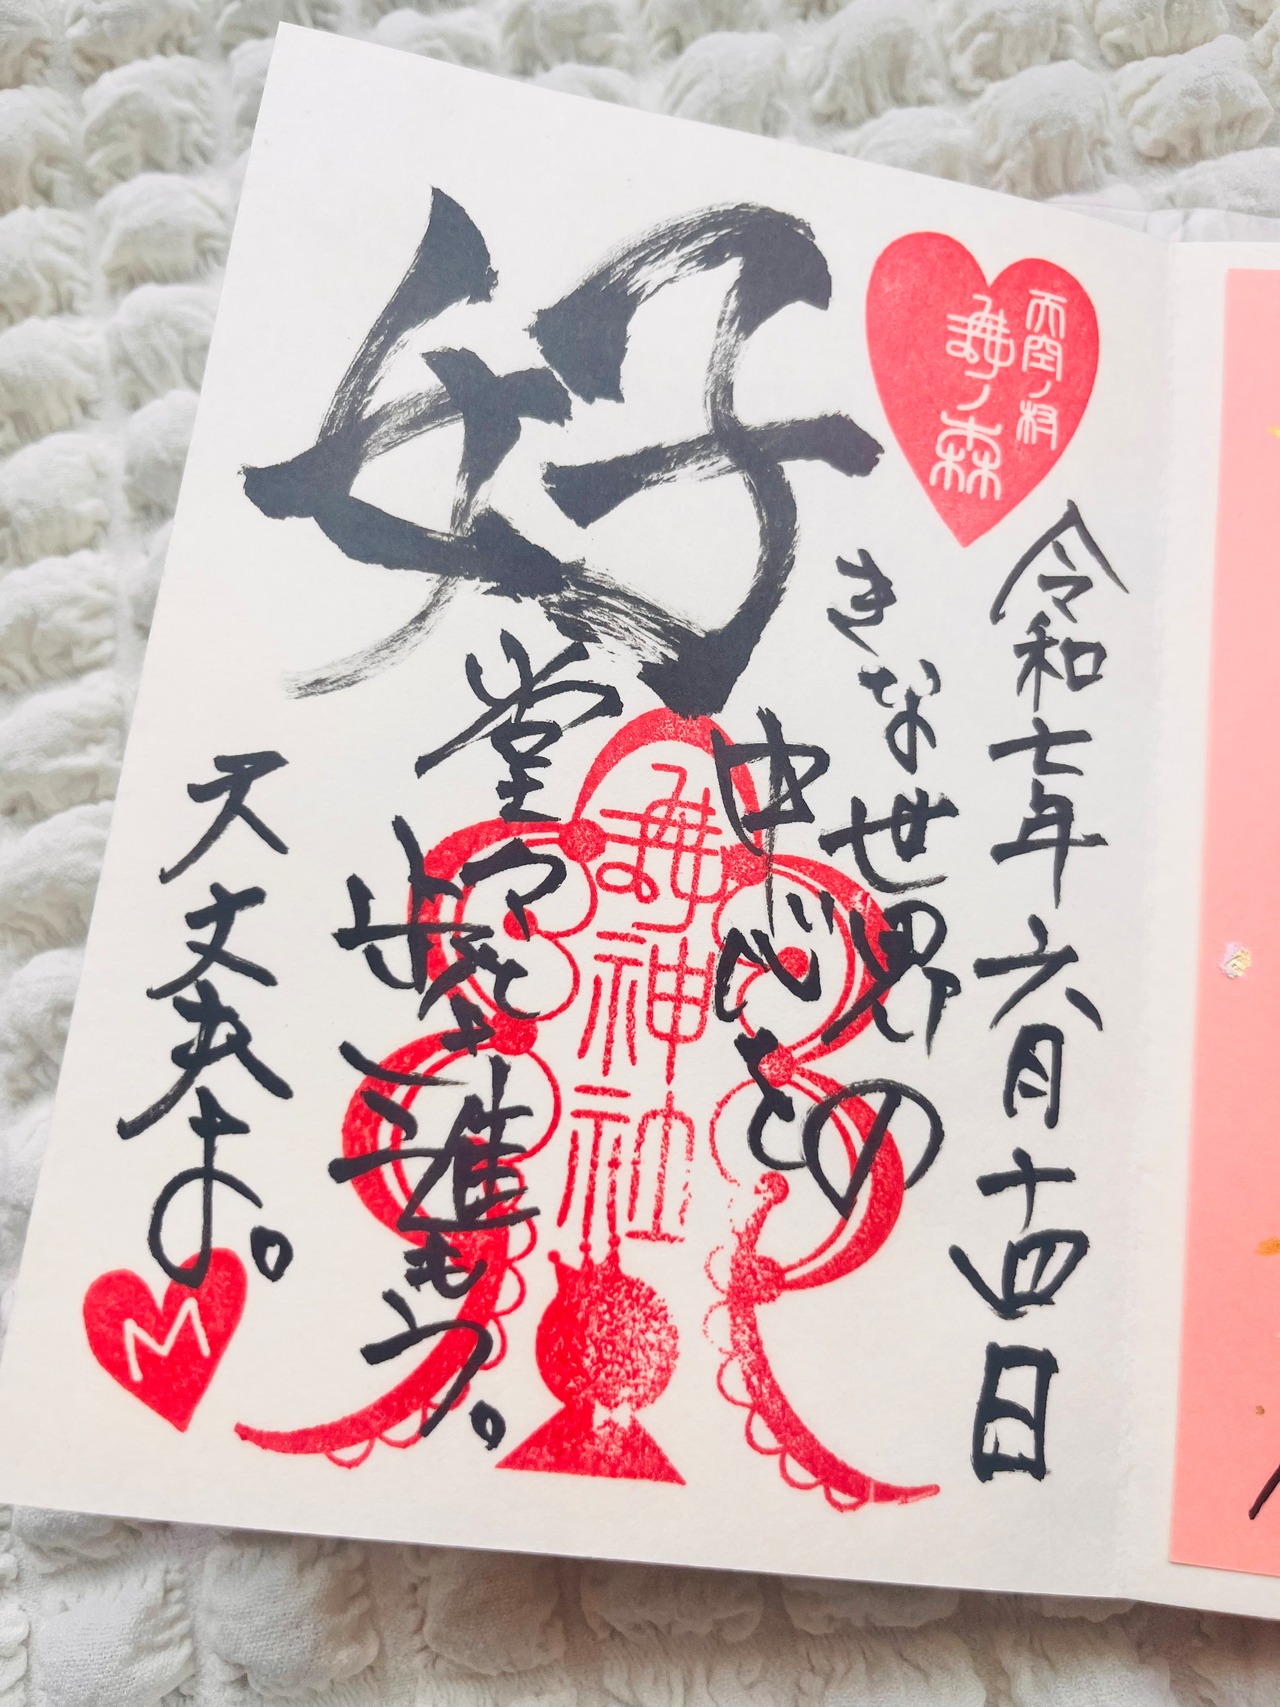 天空ノ村
舞ノ森
令和七年六月十四日
好
きな世界の
中心を
堂々
進もう。
大丈夫よ。
舞神社
M